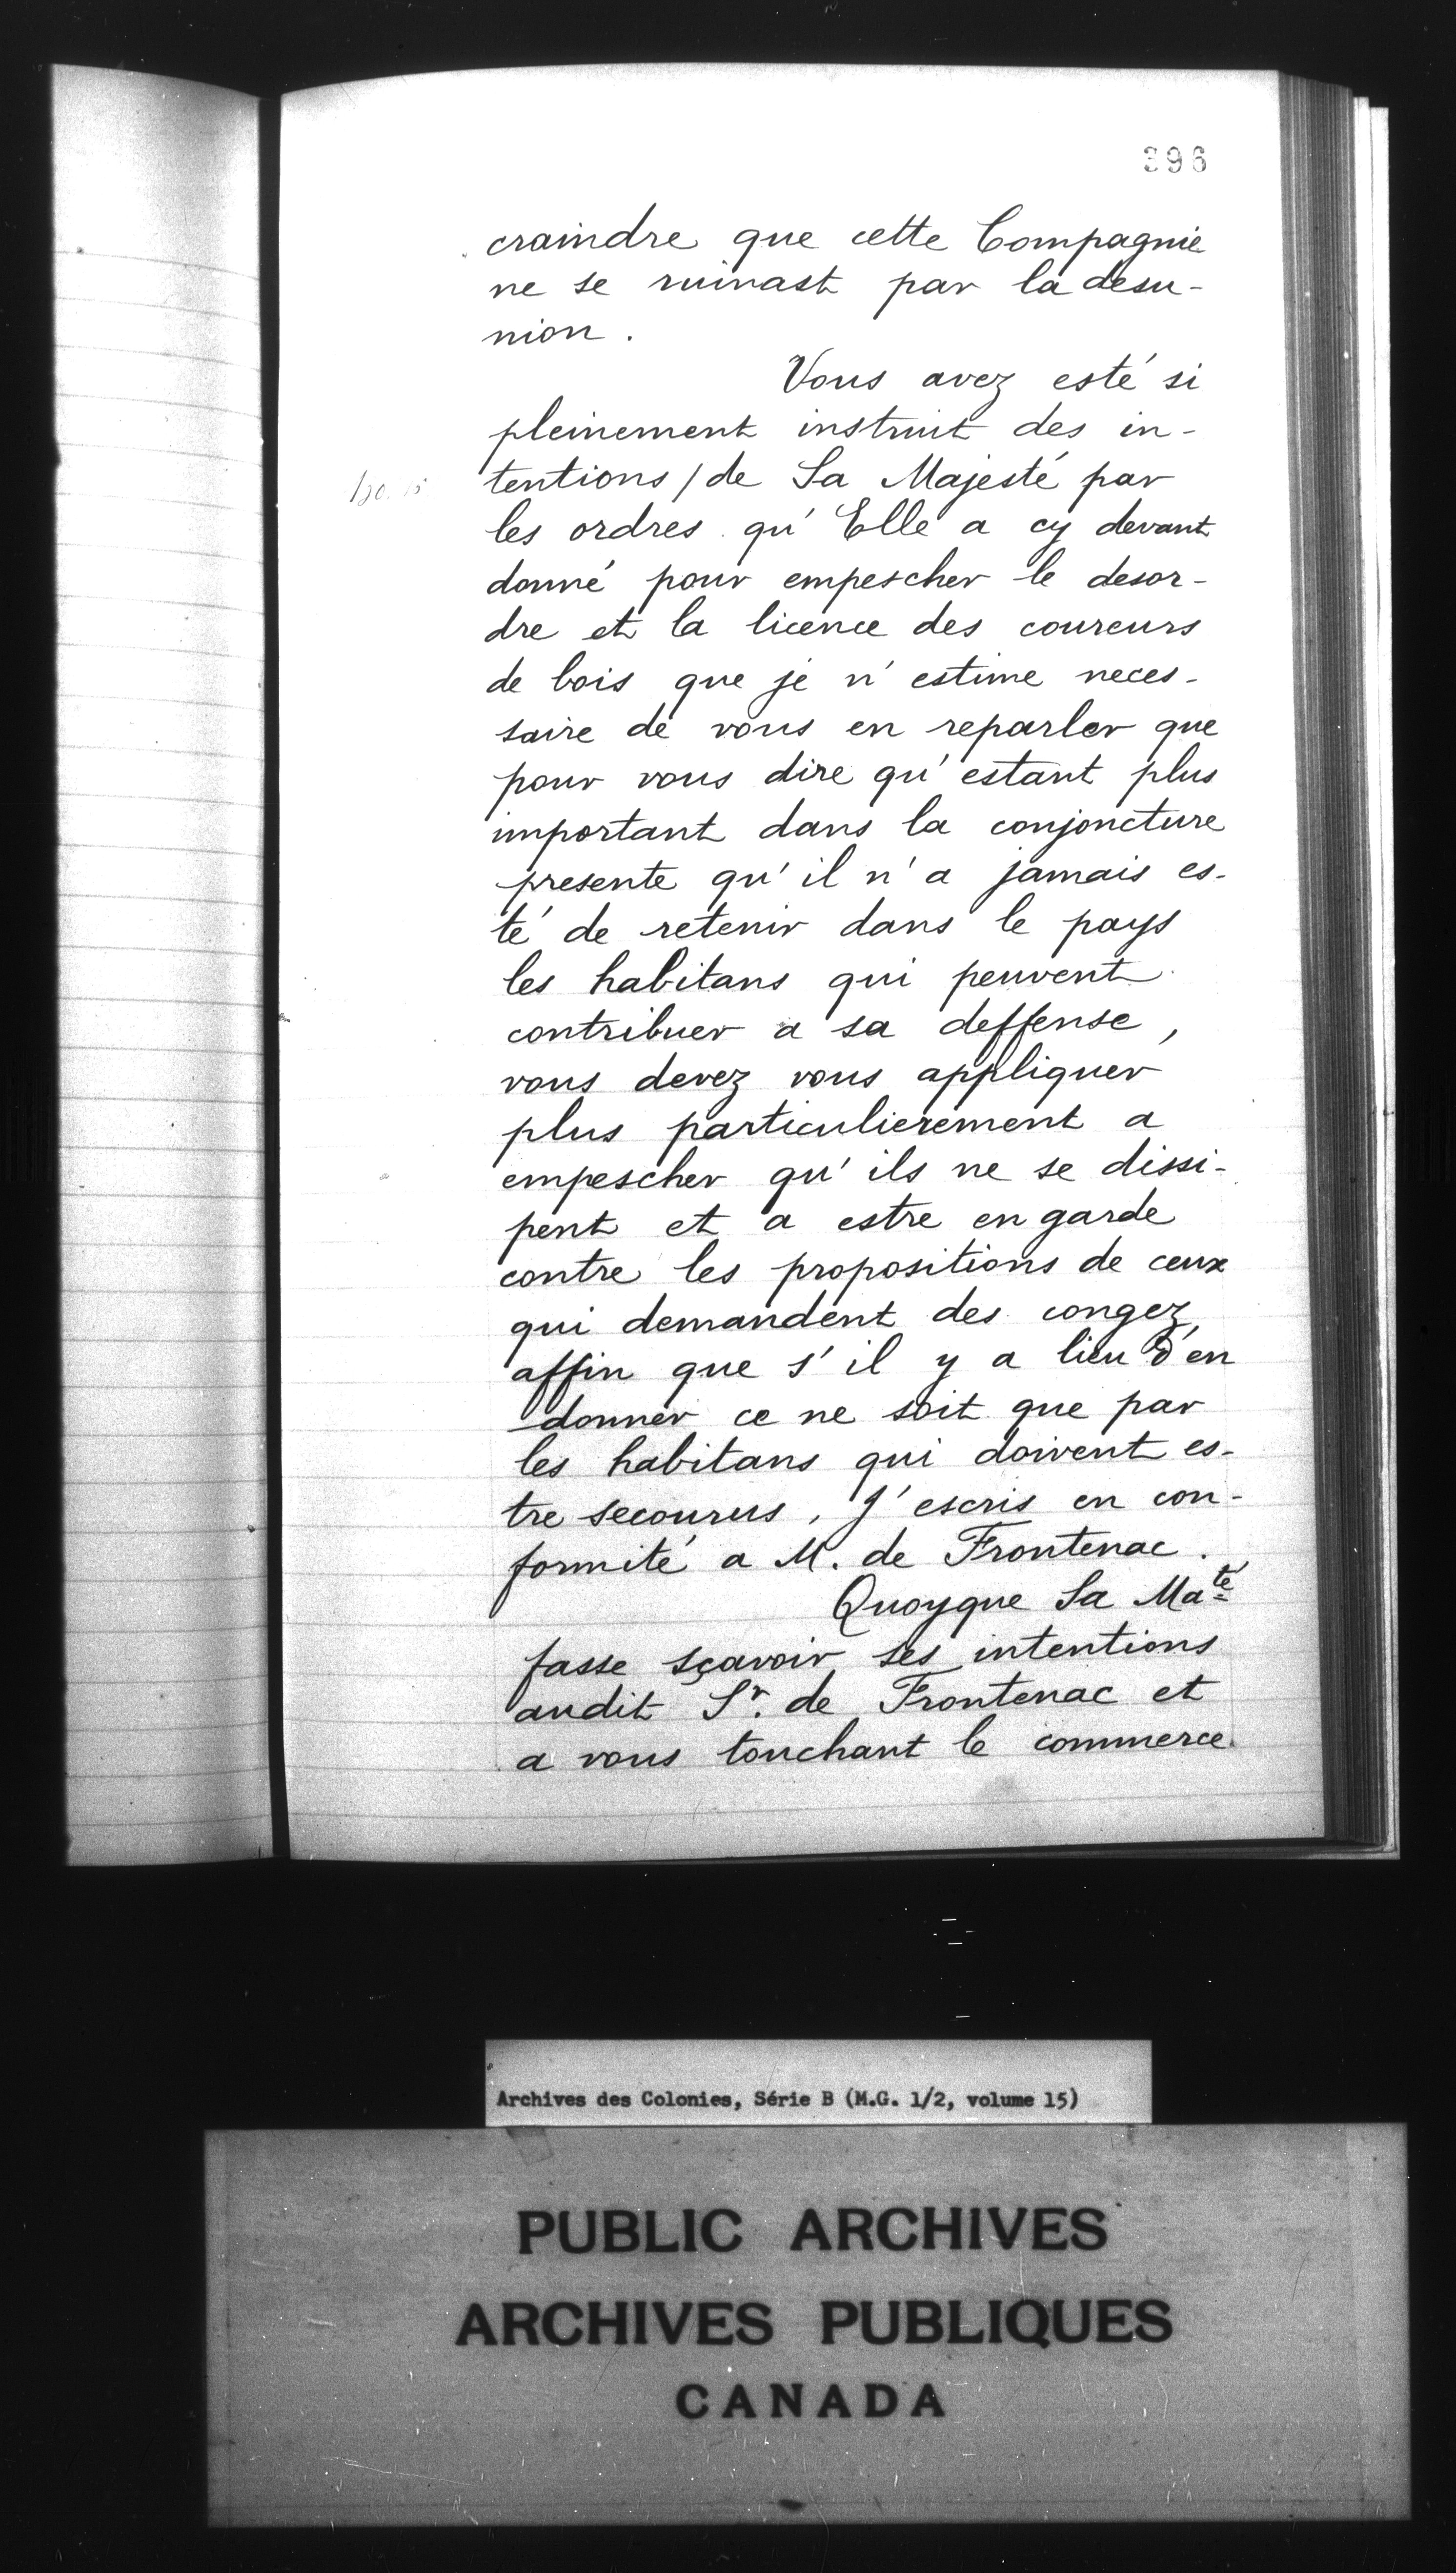 396
craindre que cette Compagnie
ne se ruinast par la desu-
nion.
Vous avez esté si
pleinement instruit des in-
tentions / de Sa Majesté par
les ordres qu'Elle a cy devant
donné pour empescher le desor-
dre et la licence des coureurs
de bois que je n'estime neces-
saire de vous en reparler que
pour vous dire qu'estant plus
important dans la conjoncture
presente qu'il n'a jamais es-
té de retenir dans le pays
les habitans qui peuvent
contribuer a sa deffense,
vous devez vous appliquer
plus particulierement a
empescher qu'ils ne se dissi-
pent et a estre en garde
contre les propositions de ceux
qui demandent des congez,
affin que s'il y a lieu d'en
donner ce ne soit que par
les habitans qui doivent es-
tre secourus, J'escris en con-
formité a M. de Frontenac.
Quoyque Sa Maté
fasse sçavoir ses intentions
audit Sr. de Frontenac et
a vous touchant le commerce
Archives des Colonies, Série B (M.G. 1/2, volume 15)
PUBLIC ARCHIVES
ARCHIVES PUBLIQUES
CANADA